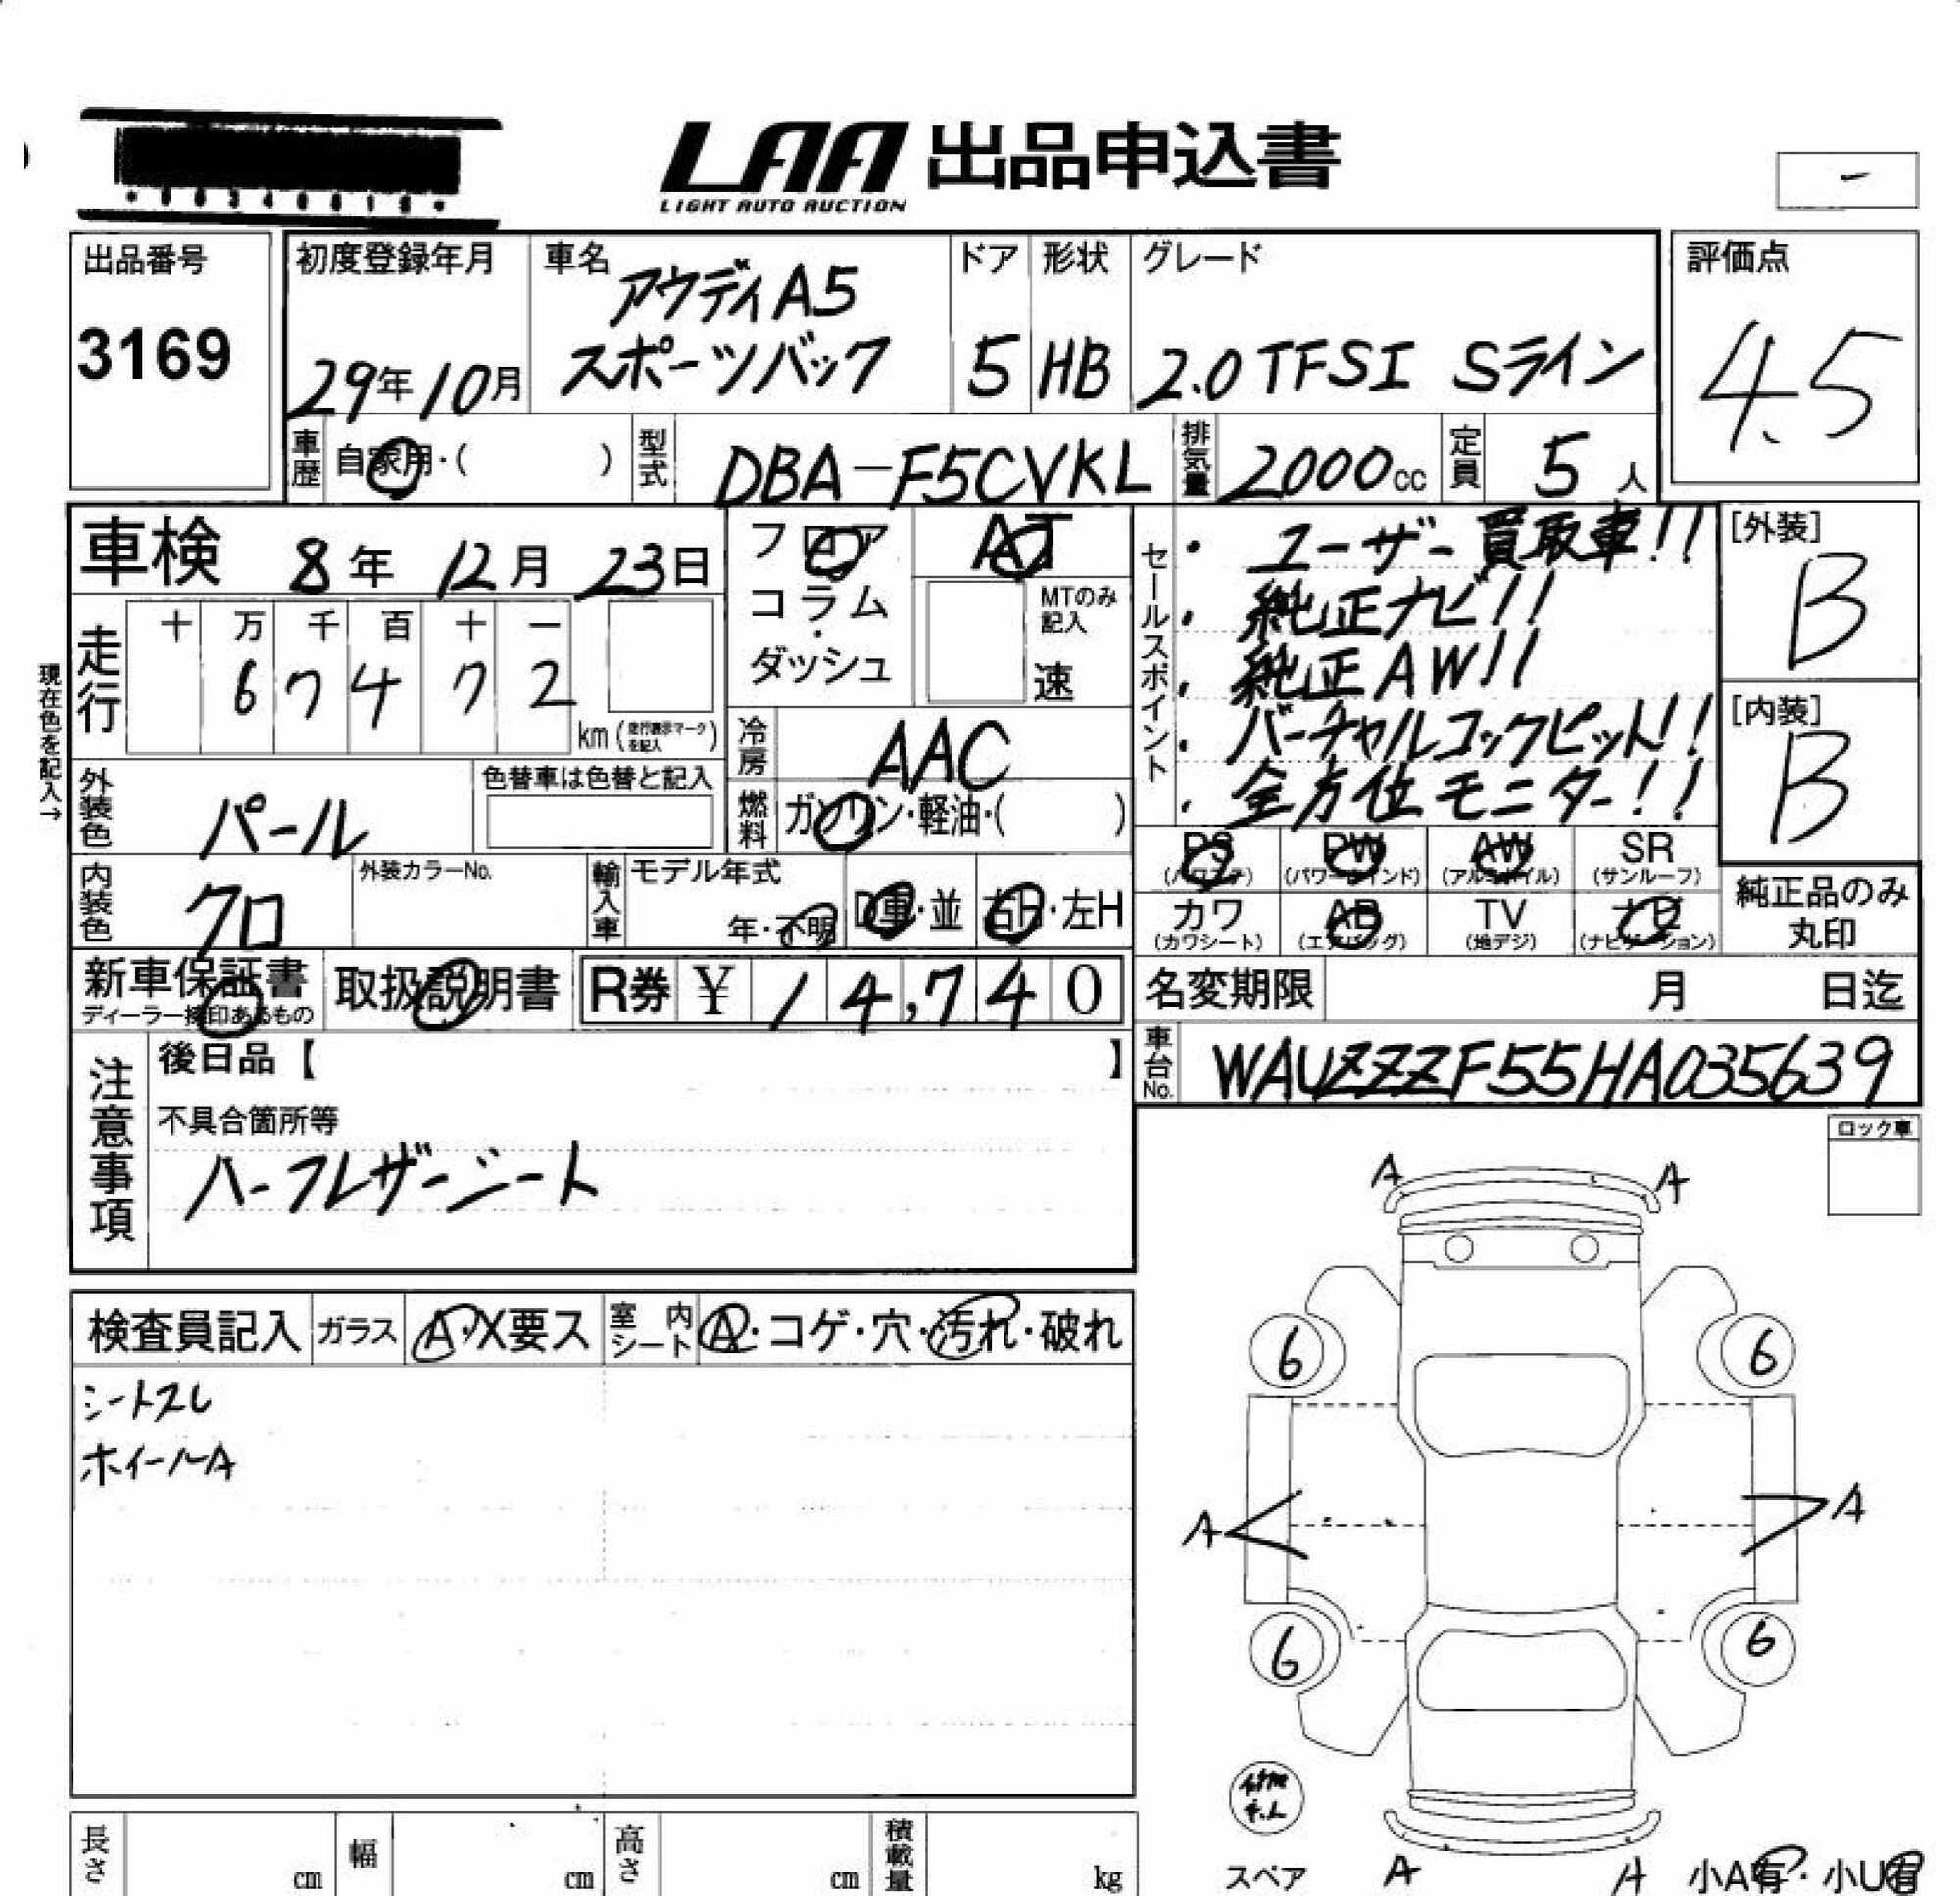 LAA 出品申込書
LIGHT AUTO AUCTION
-
出品番号
3169
初度登録年月
29年10月
車名
アウディA5
スポーツバック
ドア
5
形状
HB
グレード
2.0TFSI Sライン
評価点
4.5
車歴
自家用・( )
型式
DBA-F5CVKL
排気量
2000cc
定員
5人
車検 8年12月23日
走行
十 万 千 百 十 一
6 7 4 7 2
km
現在色を記入→
フロア
コラム
・
ダッシュ
AT
MTのみ
記入
速
冷房
AAC
燃料
ガソリン・軽油・( )
セールスポイント
・ユーザー買取車!!
・純正ナビ!!
・純正AW!!
・バーチャルコックピット!!
・全方位モニター!!
[外装]
B
[内装]
B
外装色
パール
色替車は色替と記入
内装色
クロ
外装カラーNo.
輸入車
モデル年式
年・不明
D車・並
右H・左H
PS
(パワステ)
PW
(パワーウインド)
AW
(アルミホイル)
SR
(サンルーフ)
カワ
(カワシート)
AB
(エアバッグ)
TV
(地デジ)
ナビ
(ナビゲーション)
純正品のみ
丸印
新車保証書
ディーラー捺印あるもの
取扱説明書
R券 ¥ 14,740
名変期限 月 日迄
車台No.
WAUZZZF55HA035639
注意事項
後日品【 】
不具合箇所等
ハーフレザーシート
ロック車
検査員記入
ガラス
A・X要ス
室内
シート
A・コゲ・穴・汚れ・破れ
シートスレ
ホイールA
A A
6 6
A A
6 6
スペア
A A
小A有・小U有
長さ cm
幅 cm
高さ cm
積載量 kg